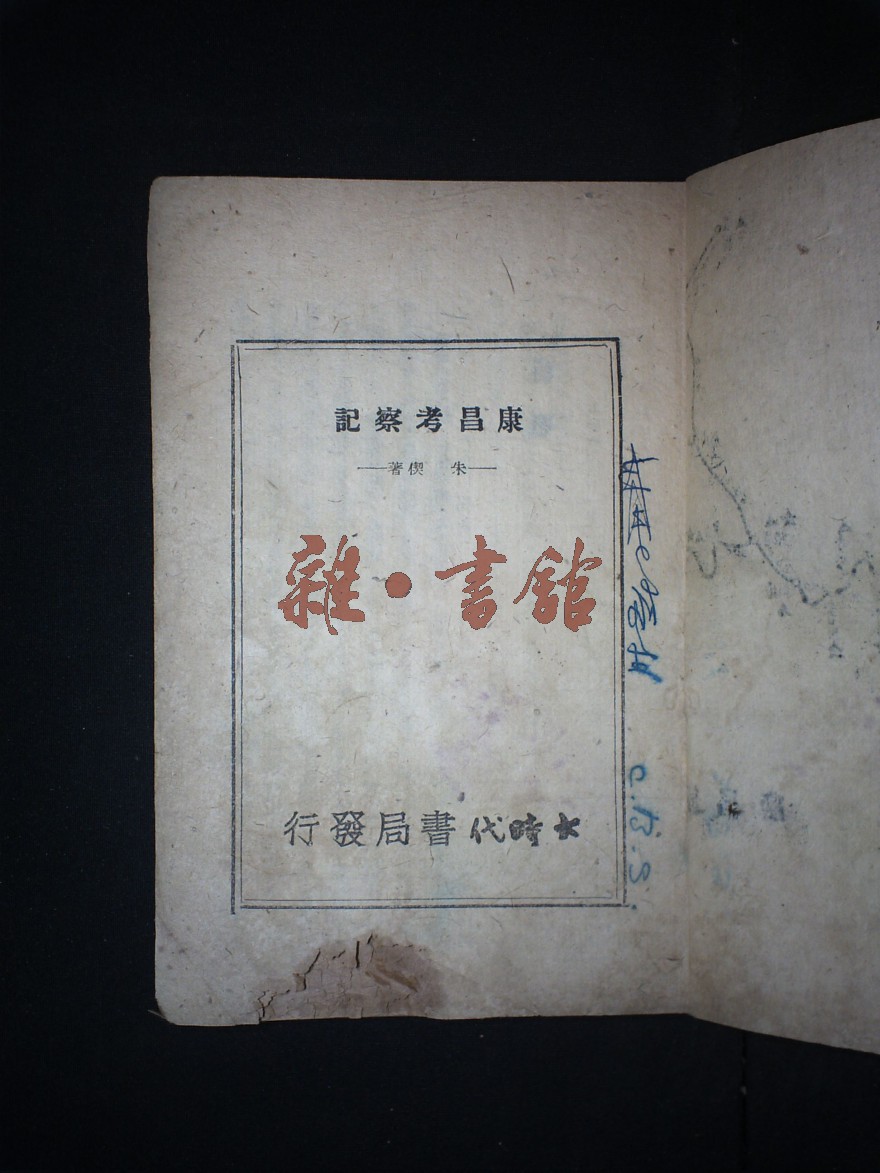 康昌考察記
——朱 偰著——
雜·書館
大時代書局發行